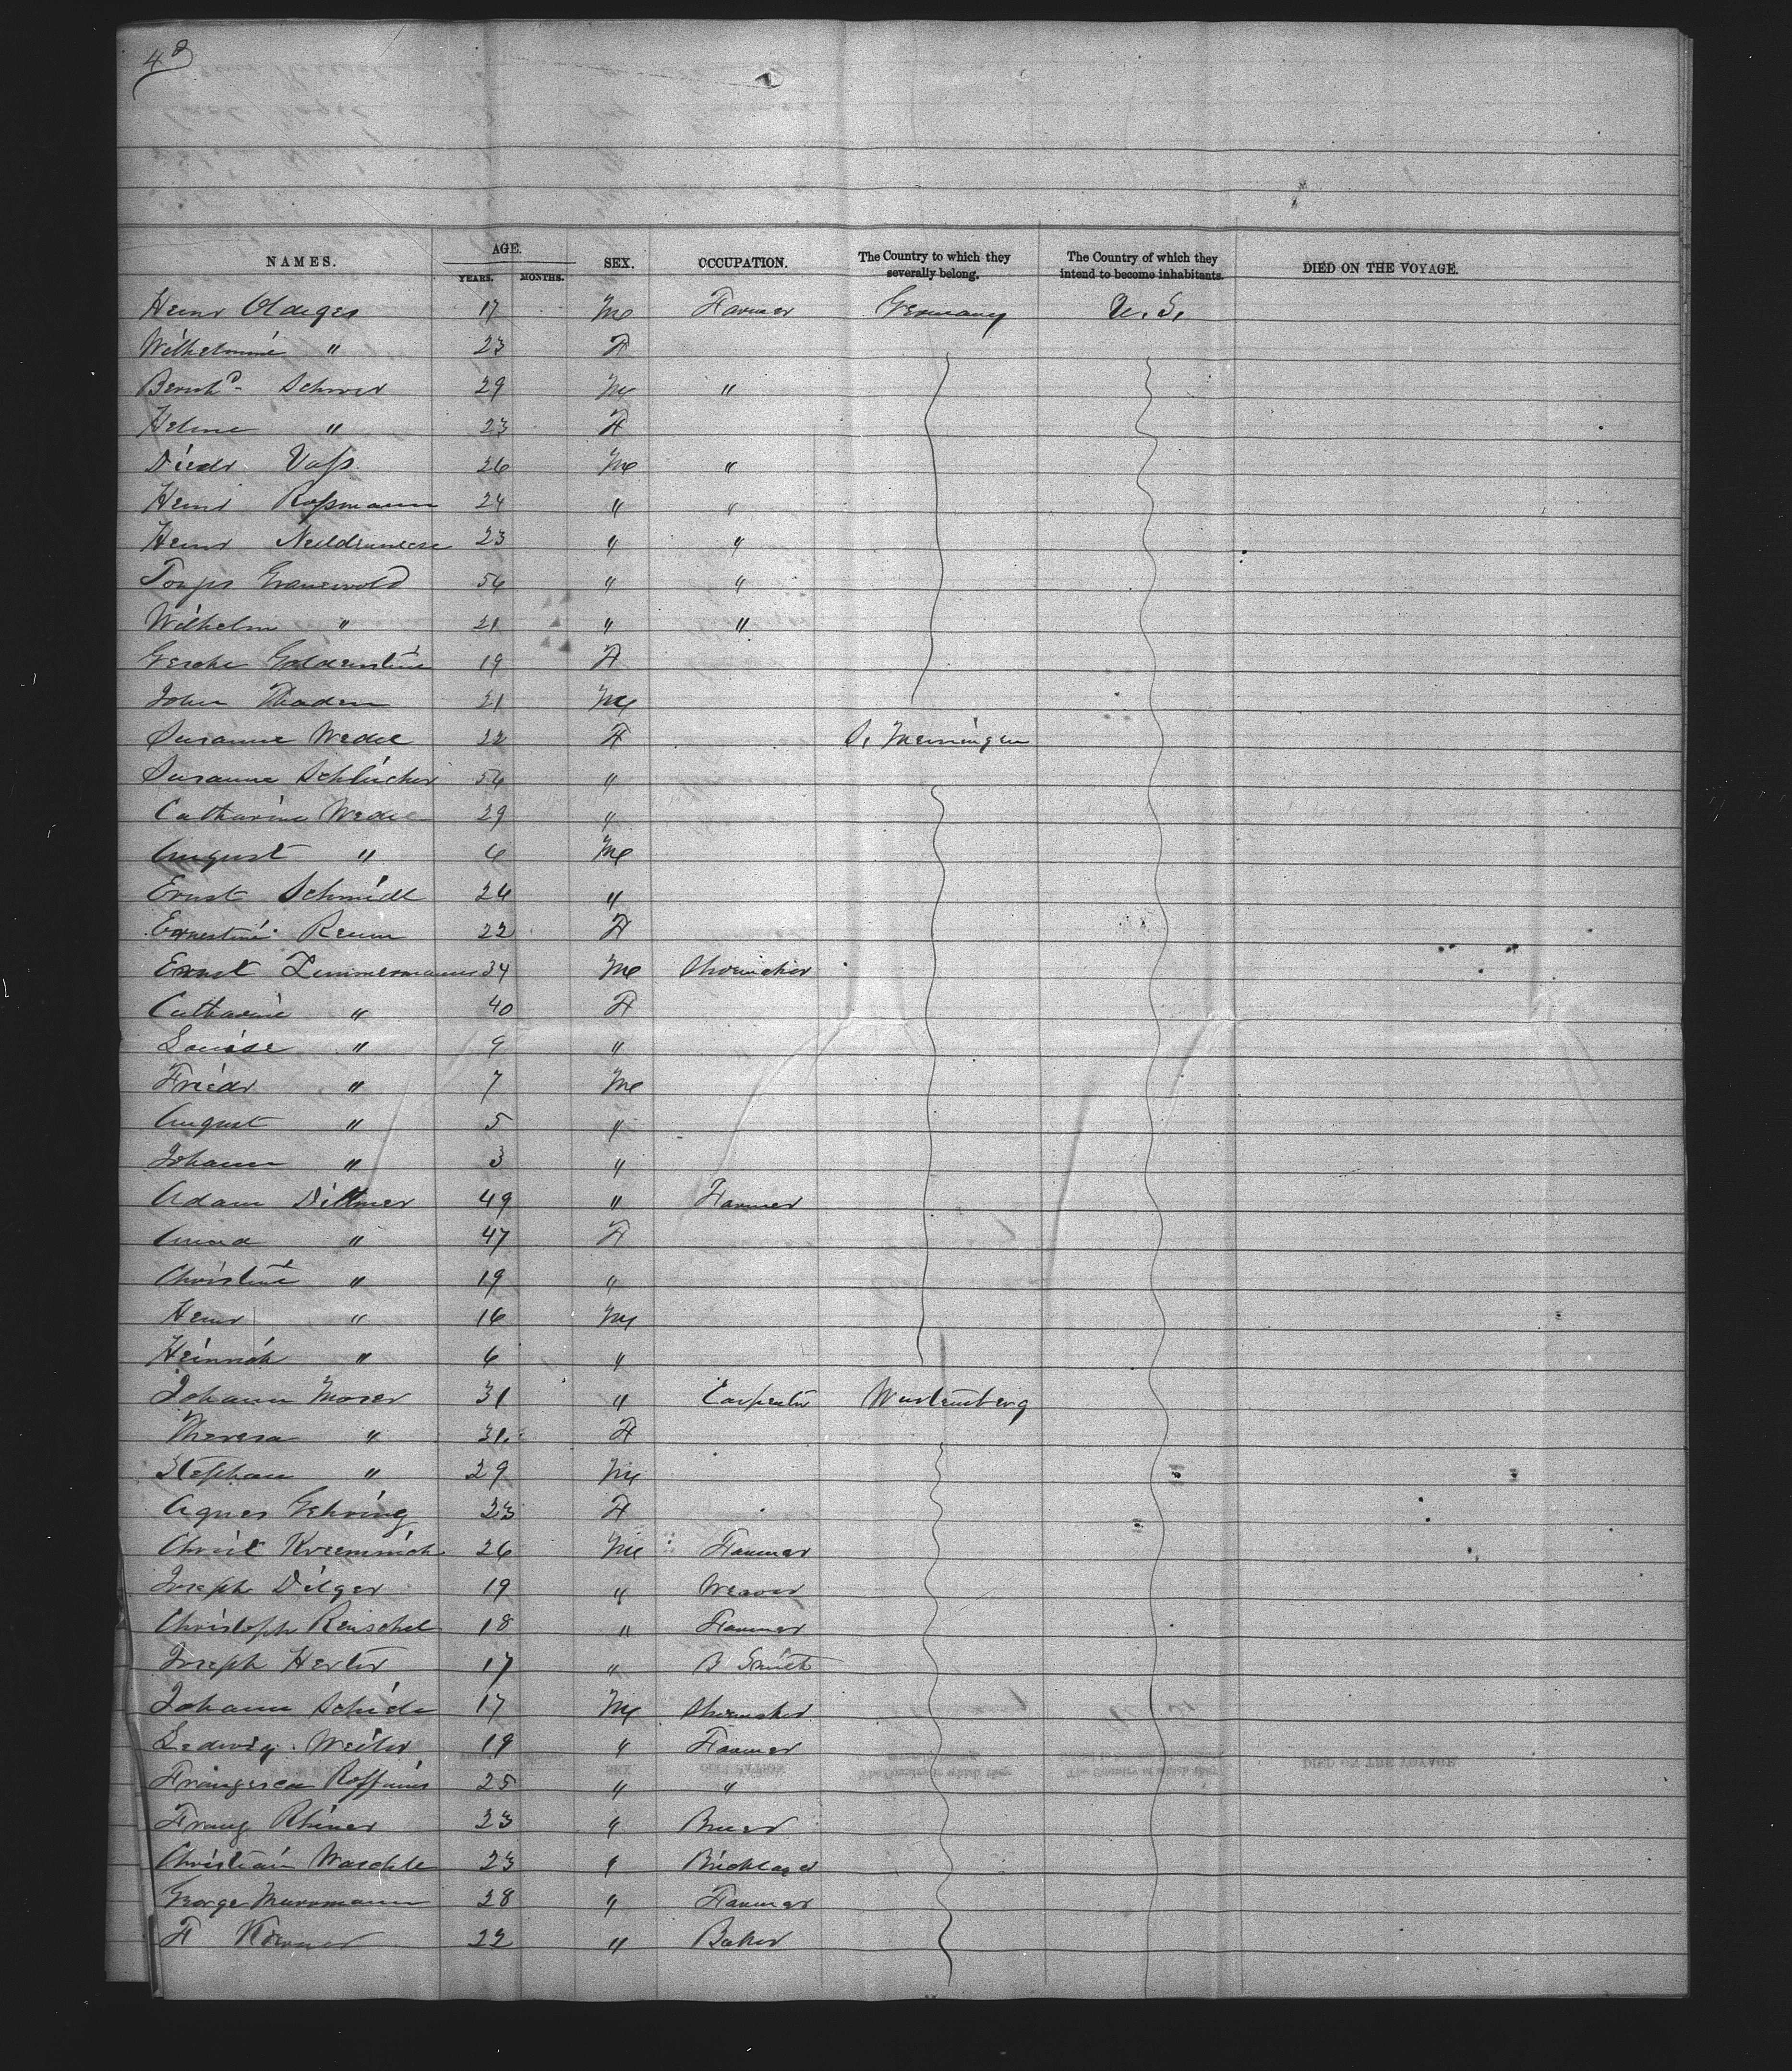 43
NAMES. AGE. YEARS. MONTHS. SEX. OCCUPATION. The Country to which they severally belong. The Country of which they intend to become inhabitants. DIED ON THE VOYAGE.
Heinr Oldiges 17 M Farmer Germany U. S.
Wilhelmine " 23 F
Bernhd Schroer 29 M "
Helene " 23 F
Diedr Vaſs 26 M "
Heinr Roſsmann 24 " "
Heinr 23 " "
56 " "
Wilhelm " 21 " "
Gesche Goldenstine 19 F
John Thaden 21 M
Susanne Wedel 22 F S. Meiningen
Susanne Schlücher 56 "
Catharine Wedel 29 "
August " 6 M
Ernst Schmidt 26 "
Ernestine Reum 22 F
Ernst Zimmermann 34 M Shoemaker
Catharine " 40 F
Louise " 9 "
Friedr " 7 M
August " 5 "
Johann " 3 "
Adam Dittmer 49 " Farmer
Anna " 47 F
Christine " 19 "
Heinr " 16 M
Heinrich " 6 "
Johann Moser 31 " Carpenter Wurtemberg
Theresa " 31 F
Stephan " 29 M
Agnes Gehring 23 F
Christ 26 M Farmer
Joseph Dilger 19 " Weaver
Christoph Renschel 18 " Farmer
Joseph Herter 17 " B Smith
Johann 17 M Shoemaker
Ludwig Weiler 19 " Farmer
25 " "
Franz Rhiner 23 "
Christian Waschle 23 " Bricklayer
George Murrmann 28 " Farmer
F 22 " Baker